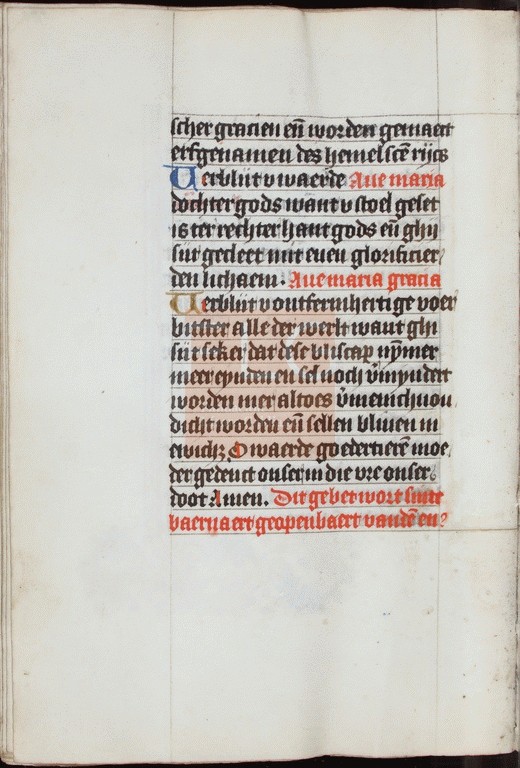 scher gracien en̄ worden gemaect
erfgenamen des hemelscē rijcs
Uerblijt v waerde Aue maria
dochter gods want v stoel geset
is ter rechter hant gods en̄ ghij
sijt gecleet mit euen glorificier
den lichaem . Aue maria gracia
Uerblijt v ontfermhertige voer
bitster alle der werlt want ghi
sijt seker dat dese bliscap nȳmer
meer eynden en sel noch v̄mindert
worden mer altoes v̄menichuou
dicht worden en̄ sellen bliuen in
ewich; O waerde goedertierē moe
der gedenct onser in die vre onser
doot Amen. Dit gebet wort sinte
baernaert geopenbaert vandē en